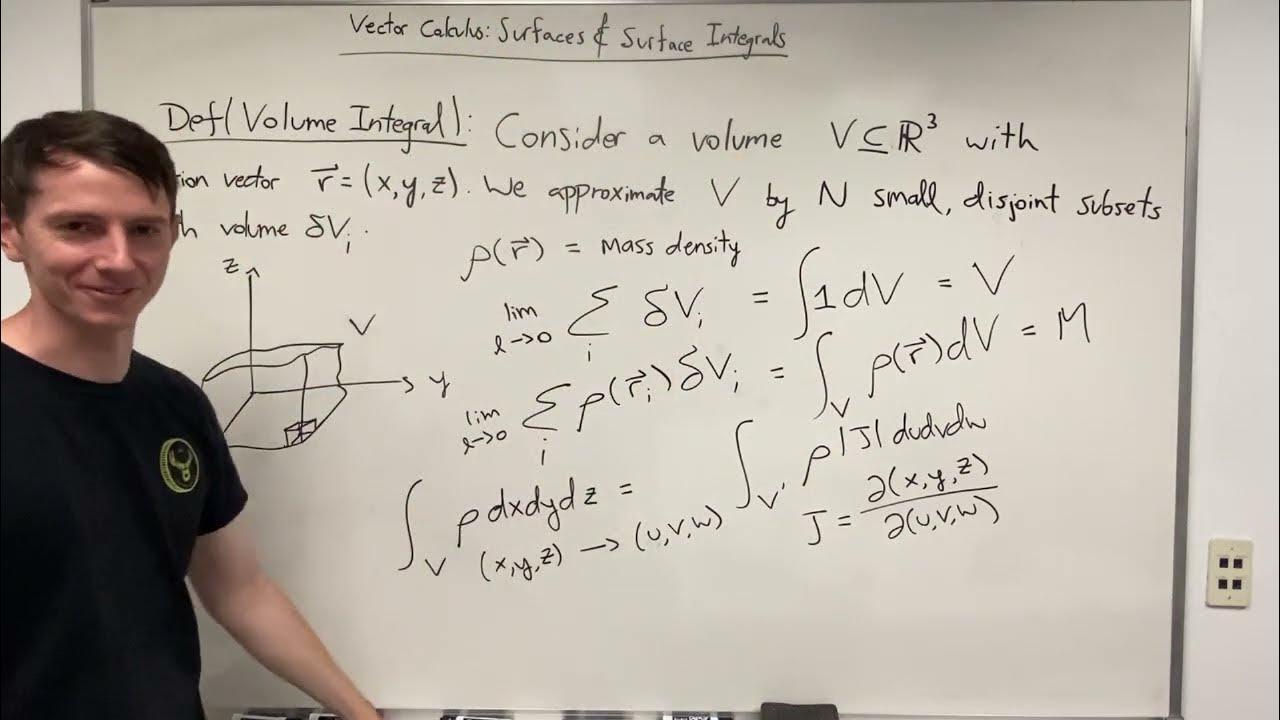 Vector Calculus: Surfaces & Surface Integrals
Def(Volume Integral): Consider a volume V⊆ℝ³ with
ion vector r⃗ = (x,y,z). We approximate V by N small, disjoint subsets
h volume δVᵢ.
ρ(r⃗) = mass density
lim ℓ→0 ∑ᵢ δVᵢ = ∫1dV = V
lim ℓ→0 ∑ᵢ ρ(r⃗ᵢ)δVᵢ = ∫_V ρ(r⃗)dV = M
∫_V ρ dxdydz = ∫_V' ρ|J| dudvdw
(x,y,z) → (u,v,w)
J = ∂(x,y,z)/∂(u,v,w)
z
V
y